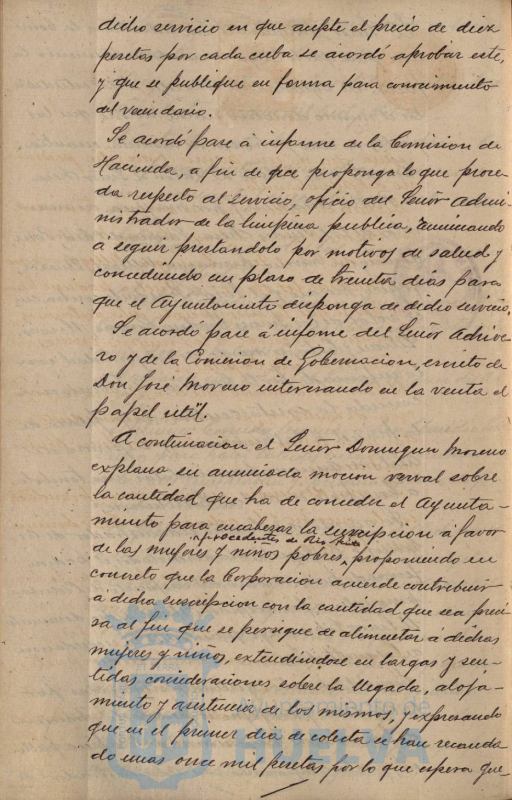 dicho servicio en que acepte el precio de diez
pesetas por cada cuba se acordó aprobar este,
y que se publique en forma para conocimiento
del vecindario.
Se acordó pase á informe de la Comision de
Hacienda, a fin de que proponga lo que proce-
da respecto al servicio, oficio del Señor Admi-
nistrador de la limpieza publica, renunciando
á seguir prestandolo por motivos de salud y
concediendo un plazo de treinta dias para
que el Ayuntamiento disponga de dicho servicio.
Se acordó pase á informe del Señor Archive-
ro y de la Comision de Gobernacion, escrito de
Don José Moreno interesando en la venta el
papel util.
A continuacion el Señor Dominguez Moreno
explana su anunciada mocion verval sobre
la cantidad que ha de conceder el Ayunta-
miento para encabezar la suscripcion á favor
procedentes de Rio-Tinto
de las mujeres y niños pobres, proponiendo en
concreto que la Corporación acuerde contribuir
á dicha suscripcion con la cantidad que sea preci
sa al fin que se persigue de alimentar á dichas
mujeres y niños, extendiendose en largas y sen-
tidas consideraciones sobre la llegada, aloja-
miento y asistencia de los mismos, y expresando
que en el primer dia de colecta se han recauda
do unas once mil pesetas por lo que espera que
Ayuntamiento de
HUELVA